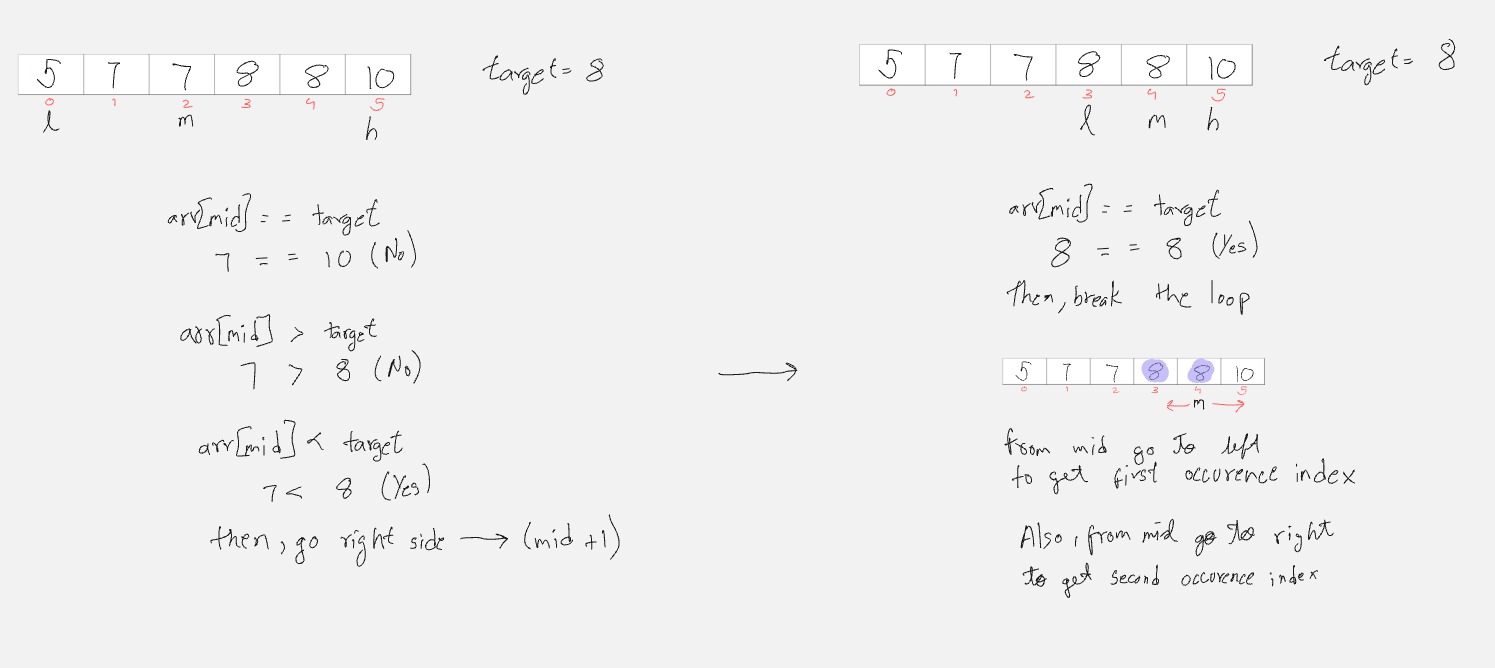 5 7 7 8 8 10
target= 8
0 1 2 3 4 5
l m h
arr[mid] == target
7 == 10 (No)
arr[mid] > target
7 > 8 (No)
arr[mid] < target
7 < 8 (Yes)
then, go right side → (mid +1)
→
5 7 7 8 8 10
target= 8
0 1 2 3 4 5
l m h
arr[mid] == target
8 == 8 (Yes)
Then, break the loop
5 7 7 8 8 10
0 1 2 3 4 5
← m →
from mid go to left
to get first occurence index
Also, from mid go to right
to get second occurence index